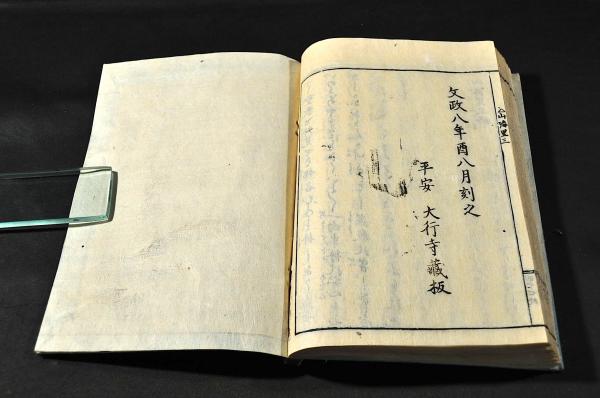 文政八年酉八月刻之
平安 大行寺藏板